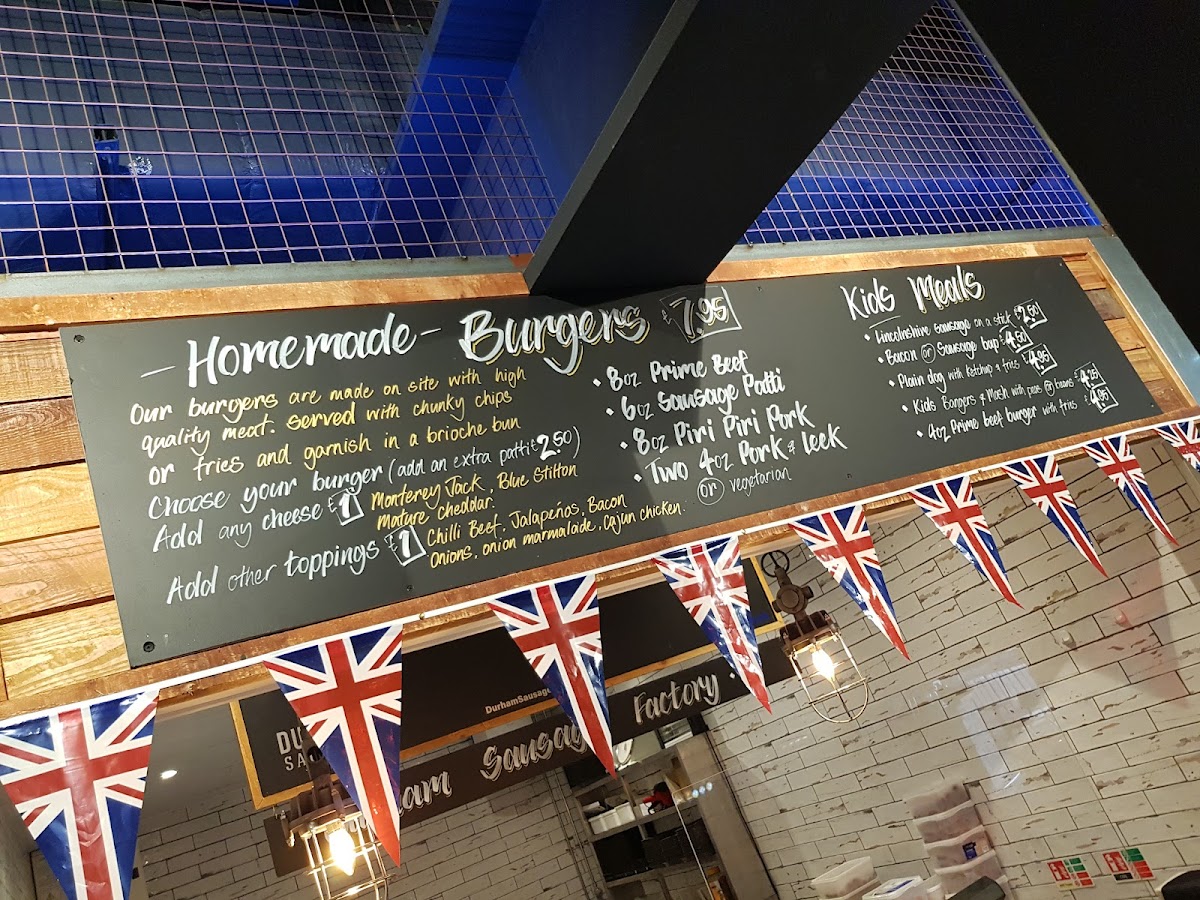 - Homemade - Burgers £7.95
Our burgers are made on site with high
quality meat. served with chunky chips
or fries and garnish in a brioche bun
Choose your burger (add an extra patti £2.50)
Add any cheese £1 Monterey Jack, Blue Stilton
Mature cheddar.
Add other toppings £1 Chilli Beef, Jalapeños, Bacon
Onions, onion marmalaide, Cajun chicken.
• 8oz Prime Beef
• 6oz Sausage Patti
• 8oz Piri Piri Pork
• Two 4oz Pork & leek
or vegetarian
Kids Meals
• Lincolnshire sausage on a stick £2.50
• Bacon or Sausage bap £4.50
• Plain dog with ketchup & fries £4.95
• Kids Bangers & Mash with peas or beans £4.25
• 4oz Prime beef burger with fries £4.95
DurhamSausage
DU
SA
am Sausage Factory •